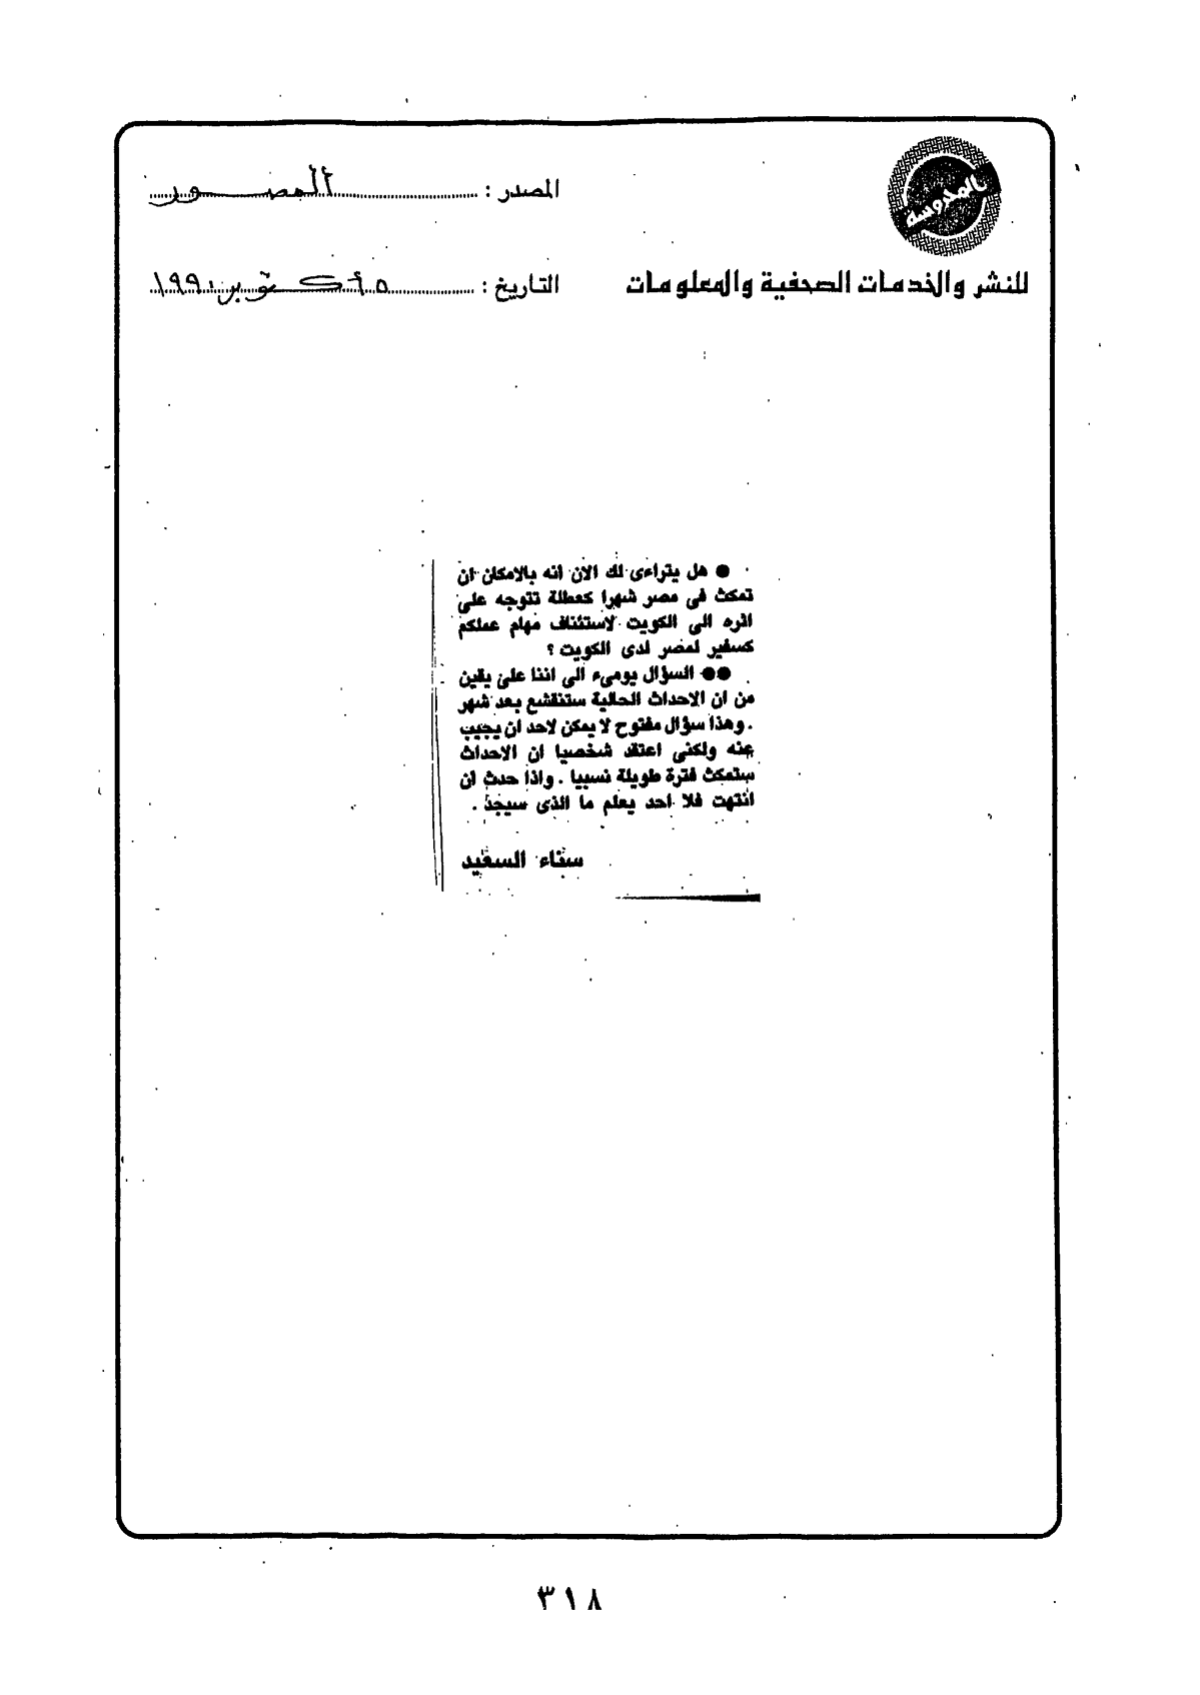 المدوسة
للنشر والخدمات الصحفية والمعلومات
المصدر : المصور
التاريخ : ٥ أكتوبر ١٩٩٠
● هل يتراءى لك الان انه بالامكان ان
تمكث فى مصر شهرا كعطلة تتوجه على
اثره الى الكويت لاستئناف مهام عملكم
كسفير لمصر لدى الكويت ؟
●● السؤال يومىء الى اننا على يقين
من ان الاحداث الحالية ستنقشع بعد شهر
. وهذا سؤال مفتوح لا يمكن لاحد ان يجيب
عنه ولكنى اعتقد شخصيا ان الاحداث
ستمكث فترة طويلة نسبيا . واذا حدث ان
انتهت فلا احد يعلم ما الذى سيجد .
سناء السعيد
٣١٨